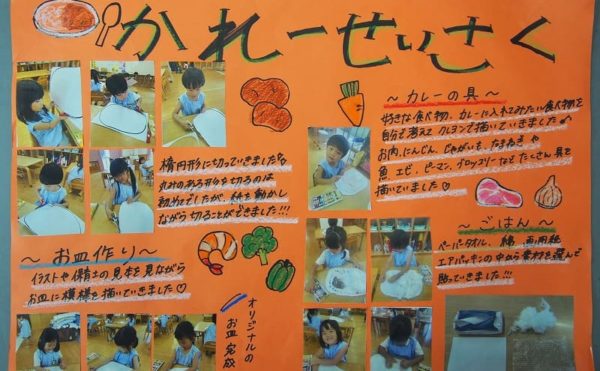 かれーせいさく
楕円形に切っていきました
丸みのある形を切るのは
初めてでしたが、紙を動かし
ながら切ることができました!!!
～お皿作り～
イラストや保育士の見本を見ながら
お皿に模様を描いていきました♡
オリジナルの
お皿完成
～カレーの具～
好きな食べ物、カレーに入れてみたい食べ物を
自分で考えクレヨンで描いていきました
お肉、にんじん、じゃがいも、たまねぎや
魚、エビ、ピーマン、ブロッコリーなどたくさん具を
描いていました♡
～ごはん～
ペーパータオル、綿、画用紙
エアパッキンの中から素材を選んで
貼っていきました!!!